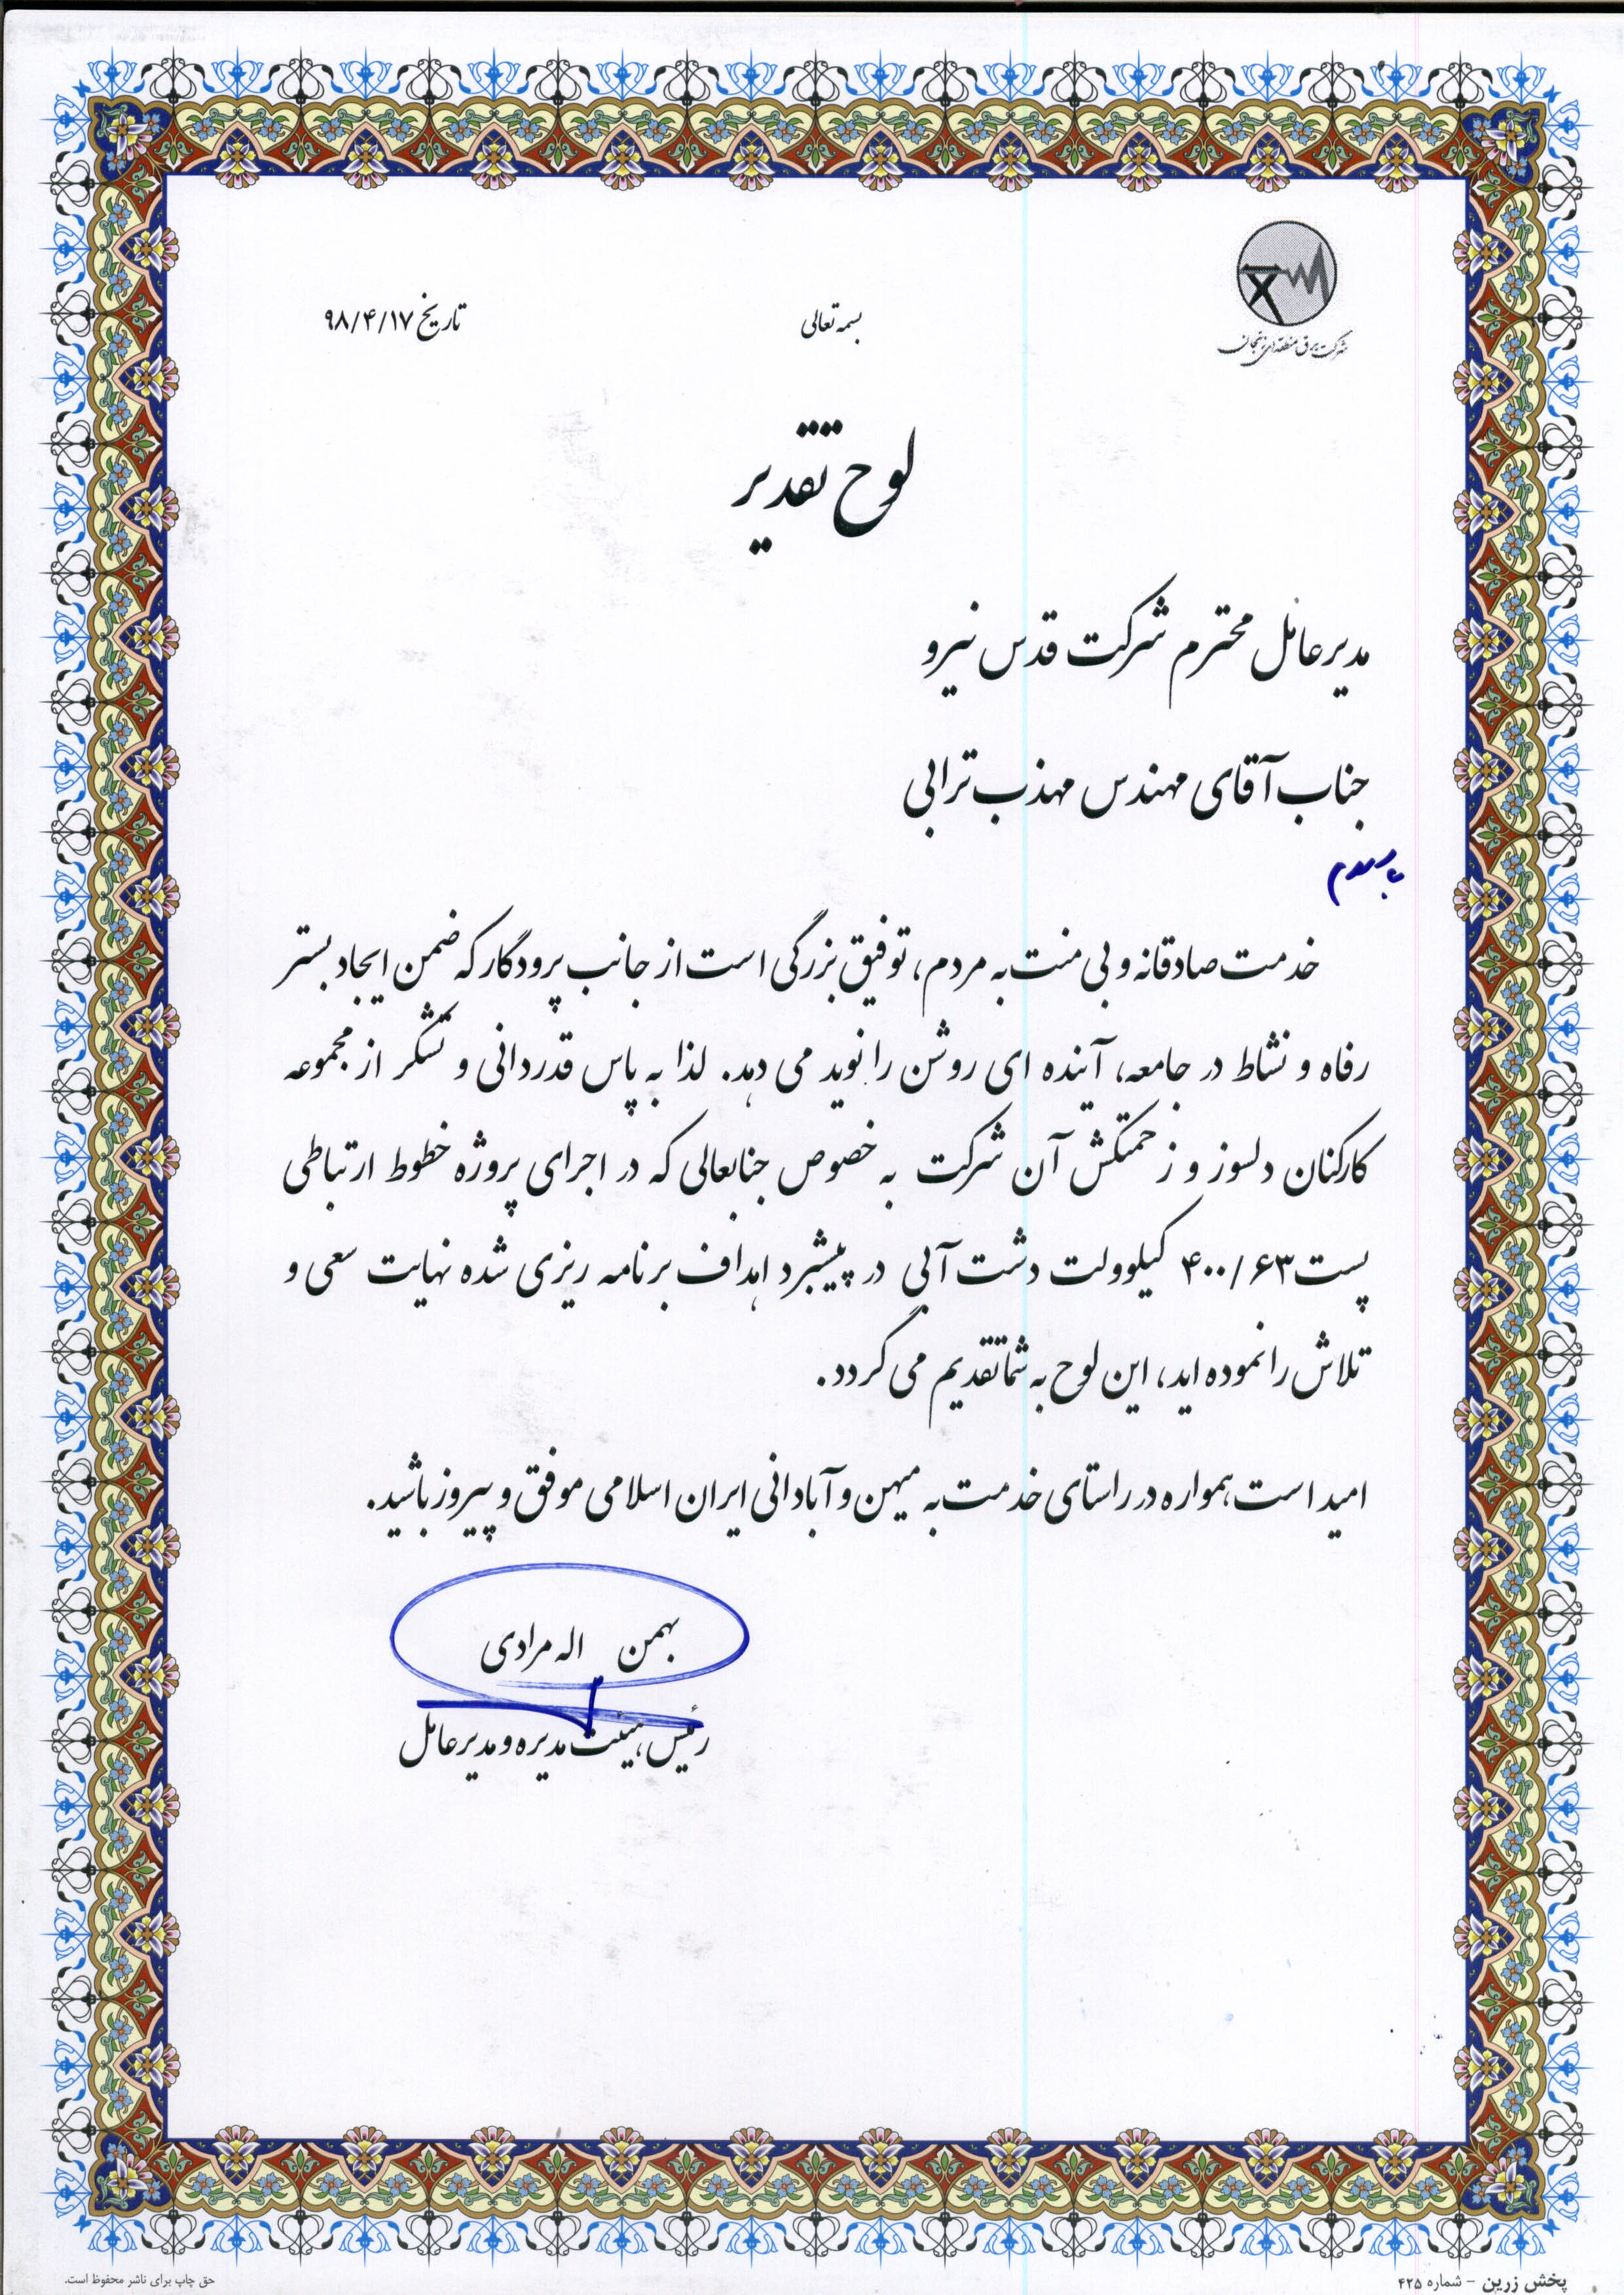 شرکت برق منطقه‌ای زنجان
بسمه تعالی
تاریخ ۹۸/۴/۱۷
لوح تقدیر
مدیرعامل محترم شرکت قدس نیرو
جناب آقای مهندس مهذب ترابی
خدمت صادقانه و بی منت به مردم، توفیق بزرگی است از جانب پرودگار که ضمن ایجاد بستر
رفاه و نشاط در جامعه، آینده ای روشن را نوید می دهد. لذا به پاس قدردانی و تشکر از مجموعه
کارکنان دلسوز و زحمتکش آن شرکت به خصوص جنابعالی که در اجرای پروژه خطوط ارتباطی
پست ۴۰۰/۶۳ کیلوولت دشت آبی در پیشبرد اهداف برنامه ریزی شده نهایت سعی و
تلاش را نموده اید، این لوح به شما تقدیم می گردد.
امید است همواره در راستای خدمت به میهن و آبادانی ایران اسلامی موفق و پیروز باشید.
بهمن اله مرادی
رئیس هیئت مدیره و مدیرعامل
پخش زرین - شماره ۴۲۵
حق چاپ برای ناشر محفوظ است.